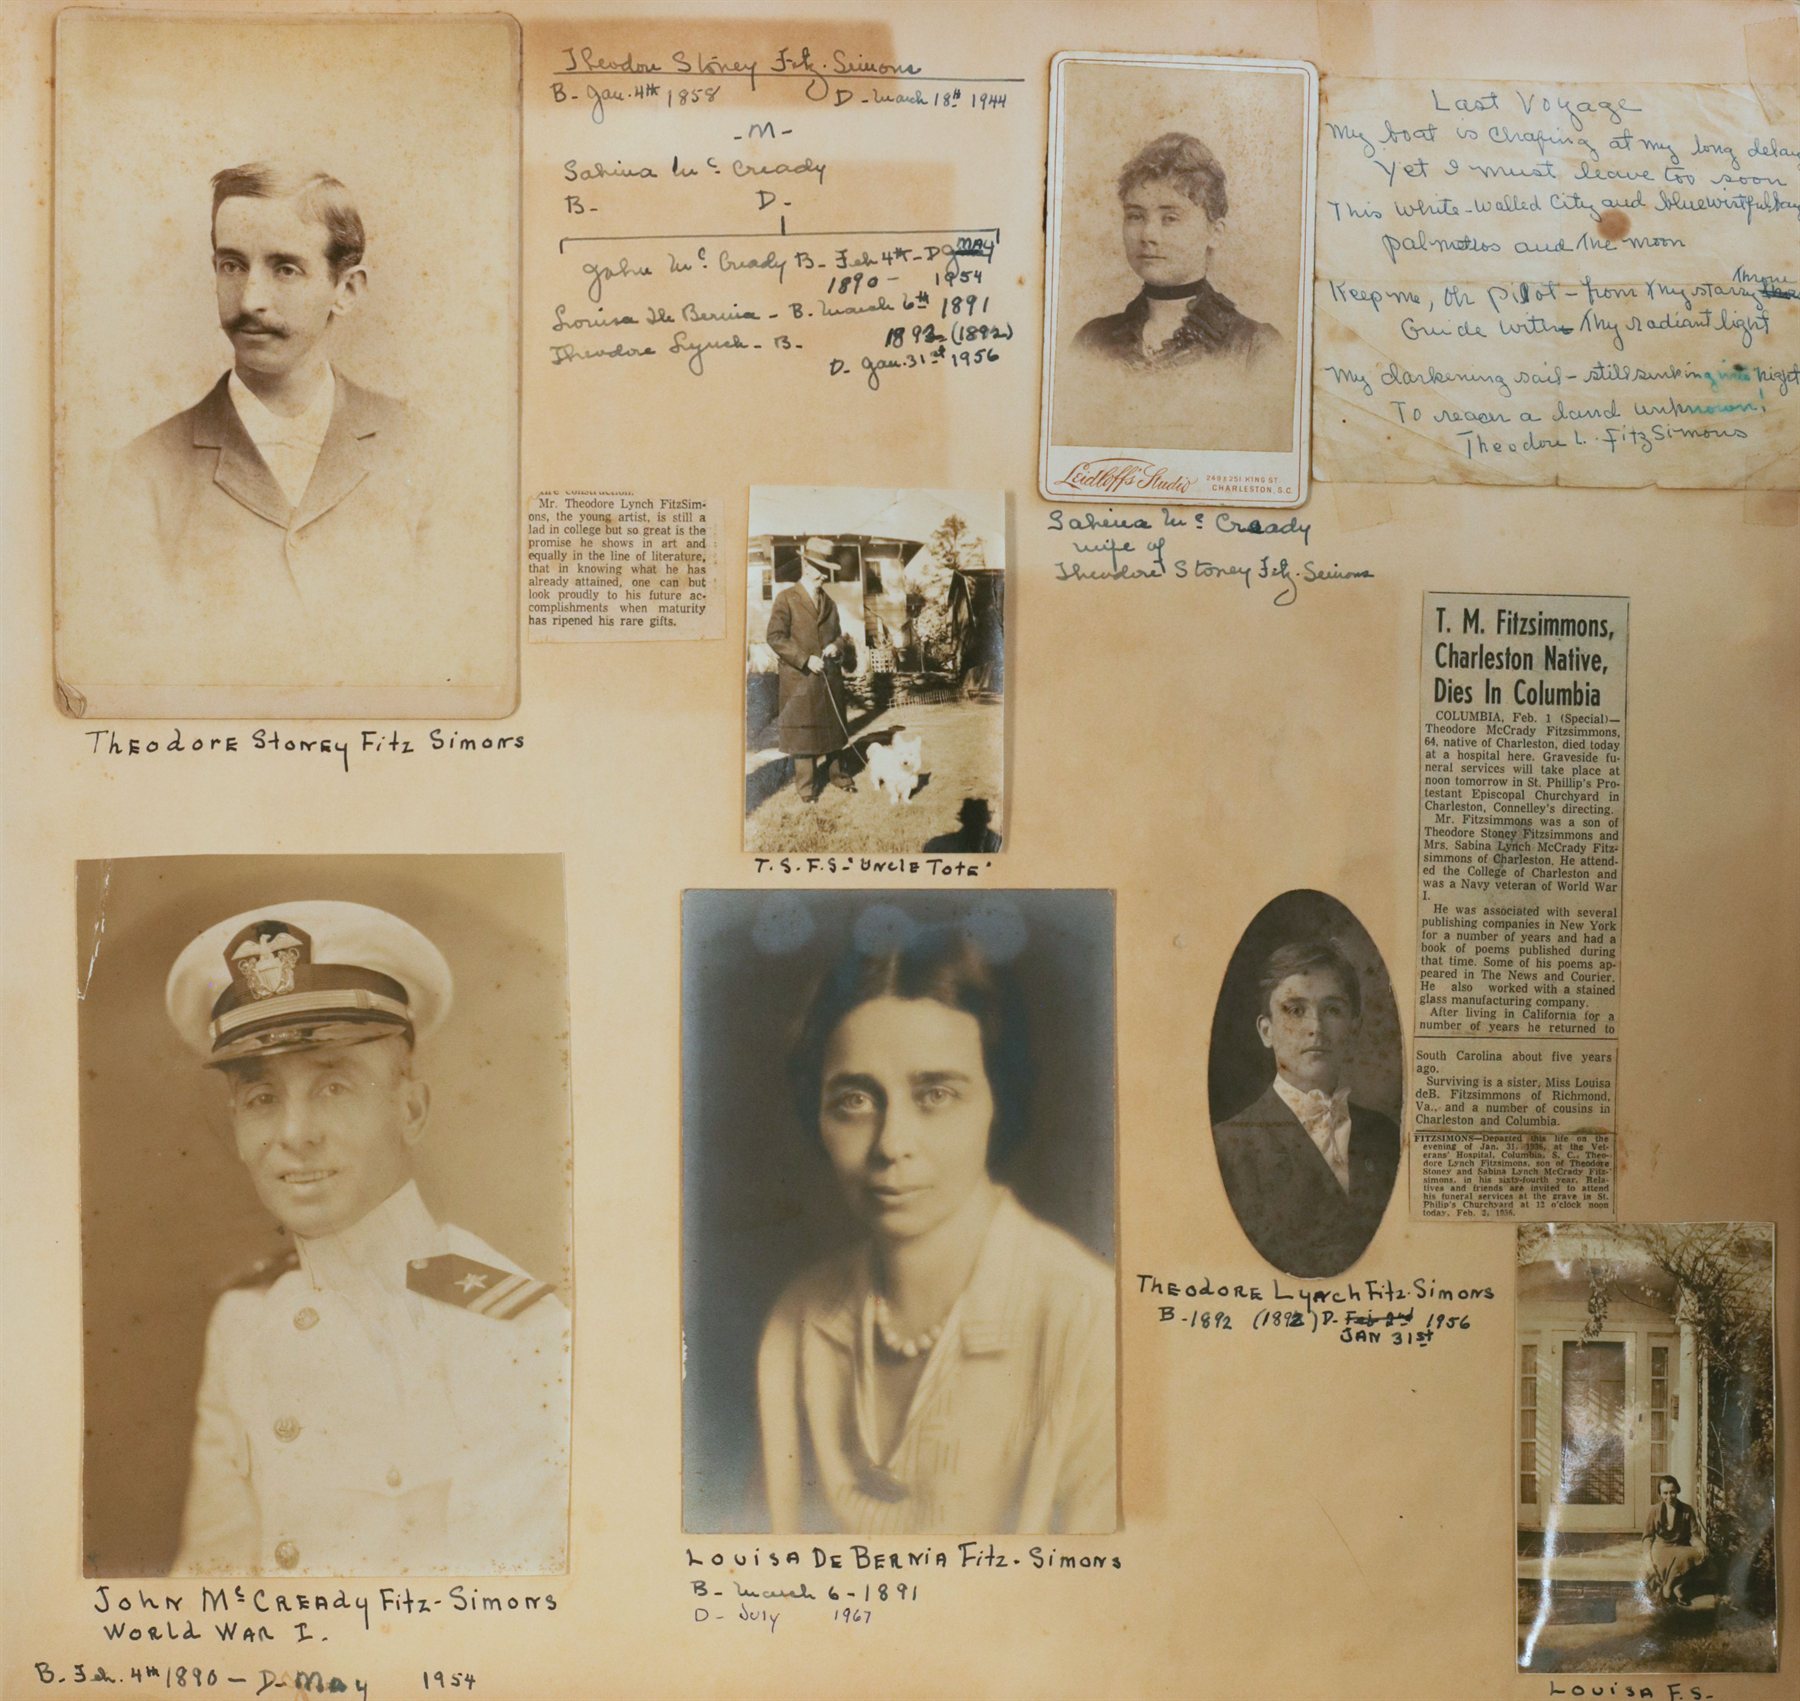 Theodore Stoney Fitz-Simons
B- Jan. 4th 1858 D- March 18th 1944
-M-
Sabina Mc Cready
B- D-
John Mc Cready B- Feb 4th - D May
1890 - 1954
Louisa De Bernia - B. March 6th 1891
Theodore Lynch - B- 1892 (1892)
D- Jan. 31st 1956
Leidloff's Studio
249 & 251 KING ST
CHARLESTON, S.C.
Sabina Mc Cready
wife of
Theodore Stoney Fitz-Simons
Last Voyage
My boat is chafing at my long delay
Yet I must leave too soon
This white-walled City and blue wistful bay
palmettos and the moon
Keep me, Oh pilot - from Thy starry Throne
Guide with Thy radiant light
My darkening sail - still sinking into night
To reach a land unknown!
Theodore L. FitzSimons
Theodore Stoney Fitz Simons
fire construction.
Mr. Theodore Lynch FitzSim-
ons, the young artist, is still a
lad in college but so great is the
promise he shows in art and
equally in the line of literature,
that in knowing what he has
already attained, one can but
look proudly to his future ac-
complishments when maturity
has ripened his rare gifts.
T. S. F. S- "Uncle Tote"
T. M. Fitzsimmons,
Charleston Native,
Dies In Columbia
COLUMBIA, Feb. 1 (Special)—
Theodore McCrady Fitzsimmons,
64, native of Charleston, died today
at a hospital here. Graveside fu-
neral services will take place at
noon tomorrow in St. Phillip's Pro-
testant Episcopal Churchyard in
Charleston, Connelley's directing.
Mr. Fitzsimmons was a son of
Theodore Stoney Fitzsimmons and
Mrs. Sabina Lynch McCrady Fitz-
simmons of Charleston. He attend-
ed the College of Charleston and
was a Navy veteran of World War
I.
He was associated with several
publishing companies in New York
for a number of years and had a
book of poems published during
that time. Some of his poems ap-
peared in The News and Courier.
He also worked with a stained
glass manufacturing company.
After living in California for a
number of years he returned to
South Carolina about five years
ago.
Surviving is a sister, Miss Louisa
deB. Fitzsimmons of Richmond,
Va., and a number of cousins in
Charleston and Columbia.
FITZSIMONS—Departed this life on the
evening of Jan. 31, 1956, at the Vet-
erans' Hospital, Columbia, S. C., Theo-
dore Lynch Fitzsimons, son of Theodore
Stoney and Sabina Lynch McCrady Fitz-
simons, in his sixty-fourth year. Rela-
tives and friends are invited to attend
his funeral services at the grave in St.
Philip's Churchyard at 12 o'clock noon
today, Feb. 2, 1956.
Theodore Lynch Fitz-Simons
B-1892 (1892) D- Feb 2nd 1956
JAN 31st
John Mc Cready Fitz-Simons
World War I.
B- Feb. 4th 1890 - D- May 1954
Louisa De Bernia Fitz-Simons
B- March 6 - 1891
D- July 1967
Louisa F.S-